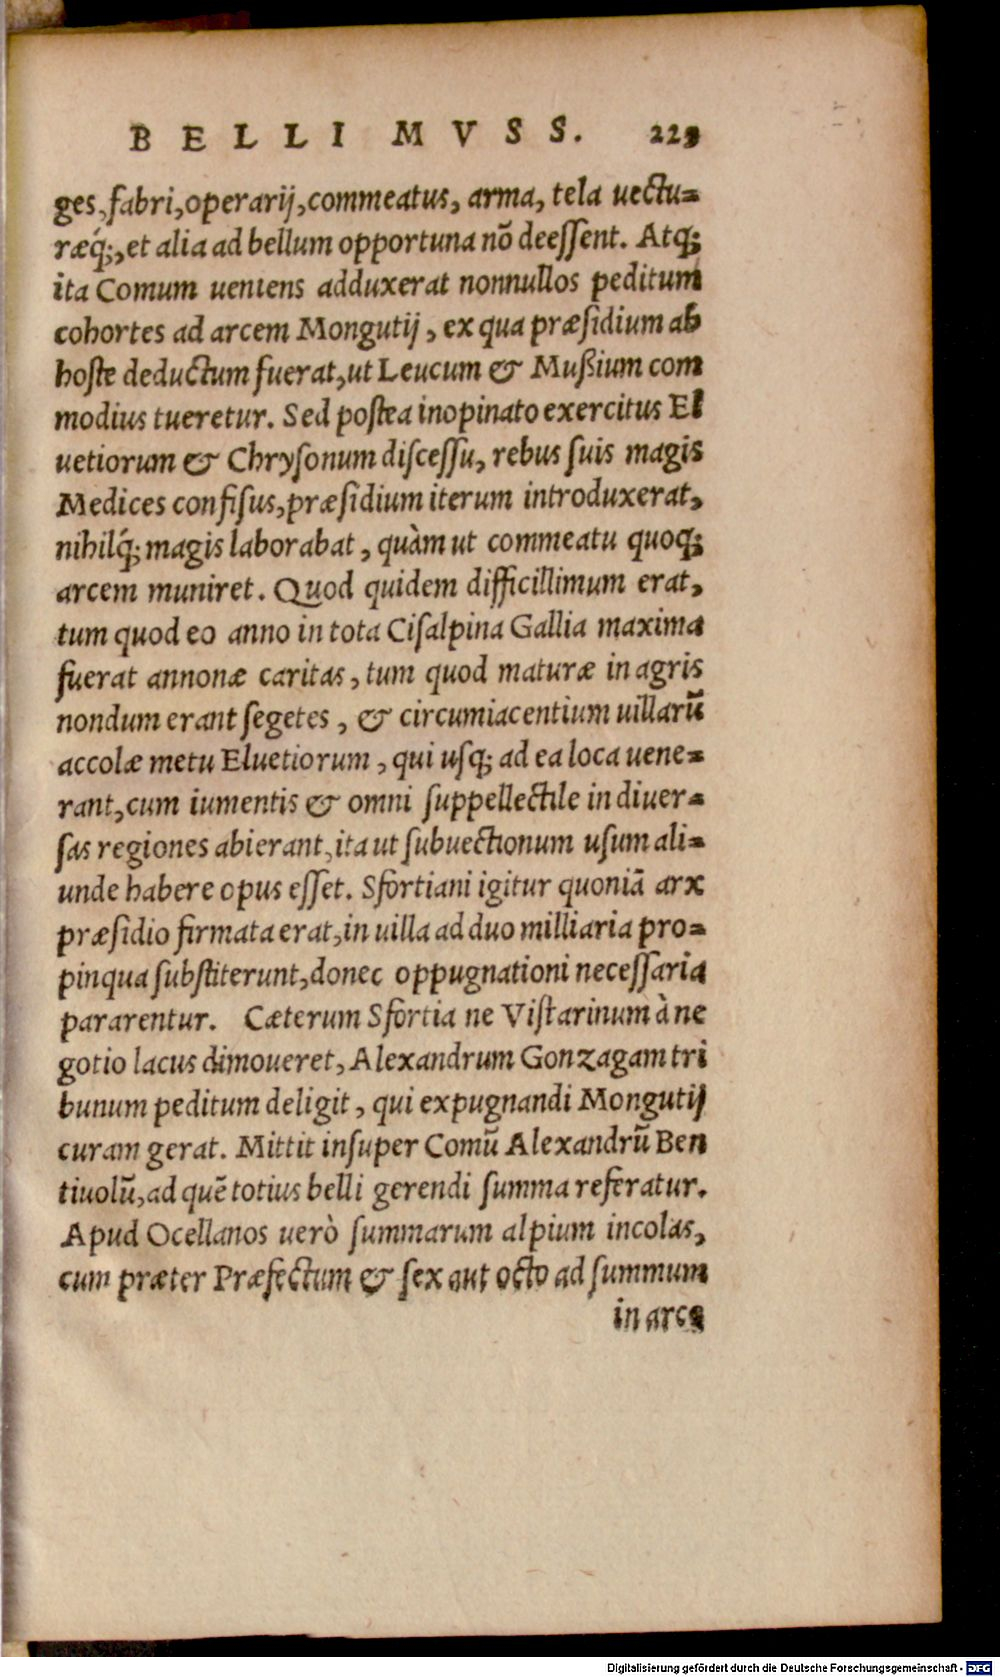 BELLI MVSS. 223
ges, fabri, operarij, commeatus, arma, tela uectu-
ræq́;, et alia ad bellum opportuna nõ deeſſent. Atq;
ita Comum ueniens adduxerat nonnullos peditum
cohortes ad arcem Mongutij, ex qua præſidium ab
hoſte deductum fuerat, ut Leucum & Mußium com
modius tueretur. Sed poſtea inopinato exercitus El
uetiorum & Chryſonum diſceſſu, rebus ſuis magis
Medices confiſus, præſidium iterum introduxerat,
nihilq́; magis laborabat, quàm ut commeatu quoq;
arcem muniret. Quod quidem difficillimum erat,
tum quod eo anno in tota Ciſalpina Gallia maxima
fuerat annonæ caritas, tum quod maturæ in agris
nondum erant ſegetes, & circumiacentium uillarũ
accolæ metu Eluetiorum, qui uſq; ad ea loca uene-
rant, cum iumentis & omni ſuppellectile in diuer-
ſas regiones abierant, ita ut ſubuectionum uſum ali-
unde habere opus eſſet. Sfortiani igitur quoniã arx
præſidio firmata erat, in uilla ad duo milliaria pro-
pinqua ſubſtiterunt, donec oppugnationi neceſſaria
pararentur. Cæterum Sfortia ne Viſtarinum à ne
gotio lacus dimoueret, Alexandrum Gonzagam tri
bunum peditum deligit, qui expugnandi Mongutij
curam gerat. Mittit inſuper Comũ Alexandrũ Ben
tiuolũ, ad quẽ totius belli gerendi ſumma referatur.
Apud Ocellanos uerò ſummarum alpium incolas,
cum præter Præfectum & ſex aut octo ad ſummum
in arce
Digitalisierung gefördert durch die Deutsche Forschungsgemeinschaft - DFG